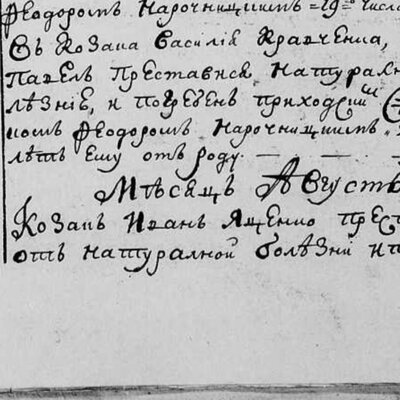 Ѳеодоромъ Нарочницкимъ =19=го числа
Съ Козака Василія Кравченка,
Павелъ Преставися, Натурал
лѣзніе, и погребенъ приходский
номъ Ѳеодоромъ Нарочницкимъ
лѣтъ ему отъ роду. — — —
Мѣсяцъ Августъ
Козакъ Иванъ Ященко прест
отъ натуралной болѣзни и п